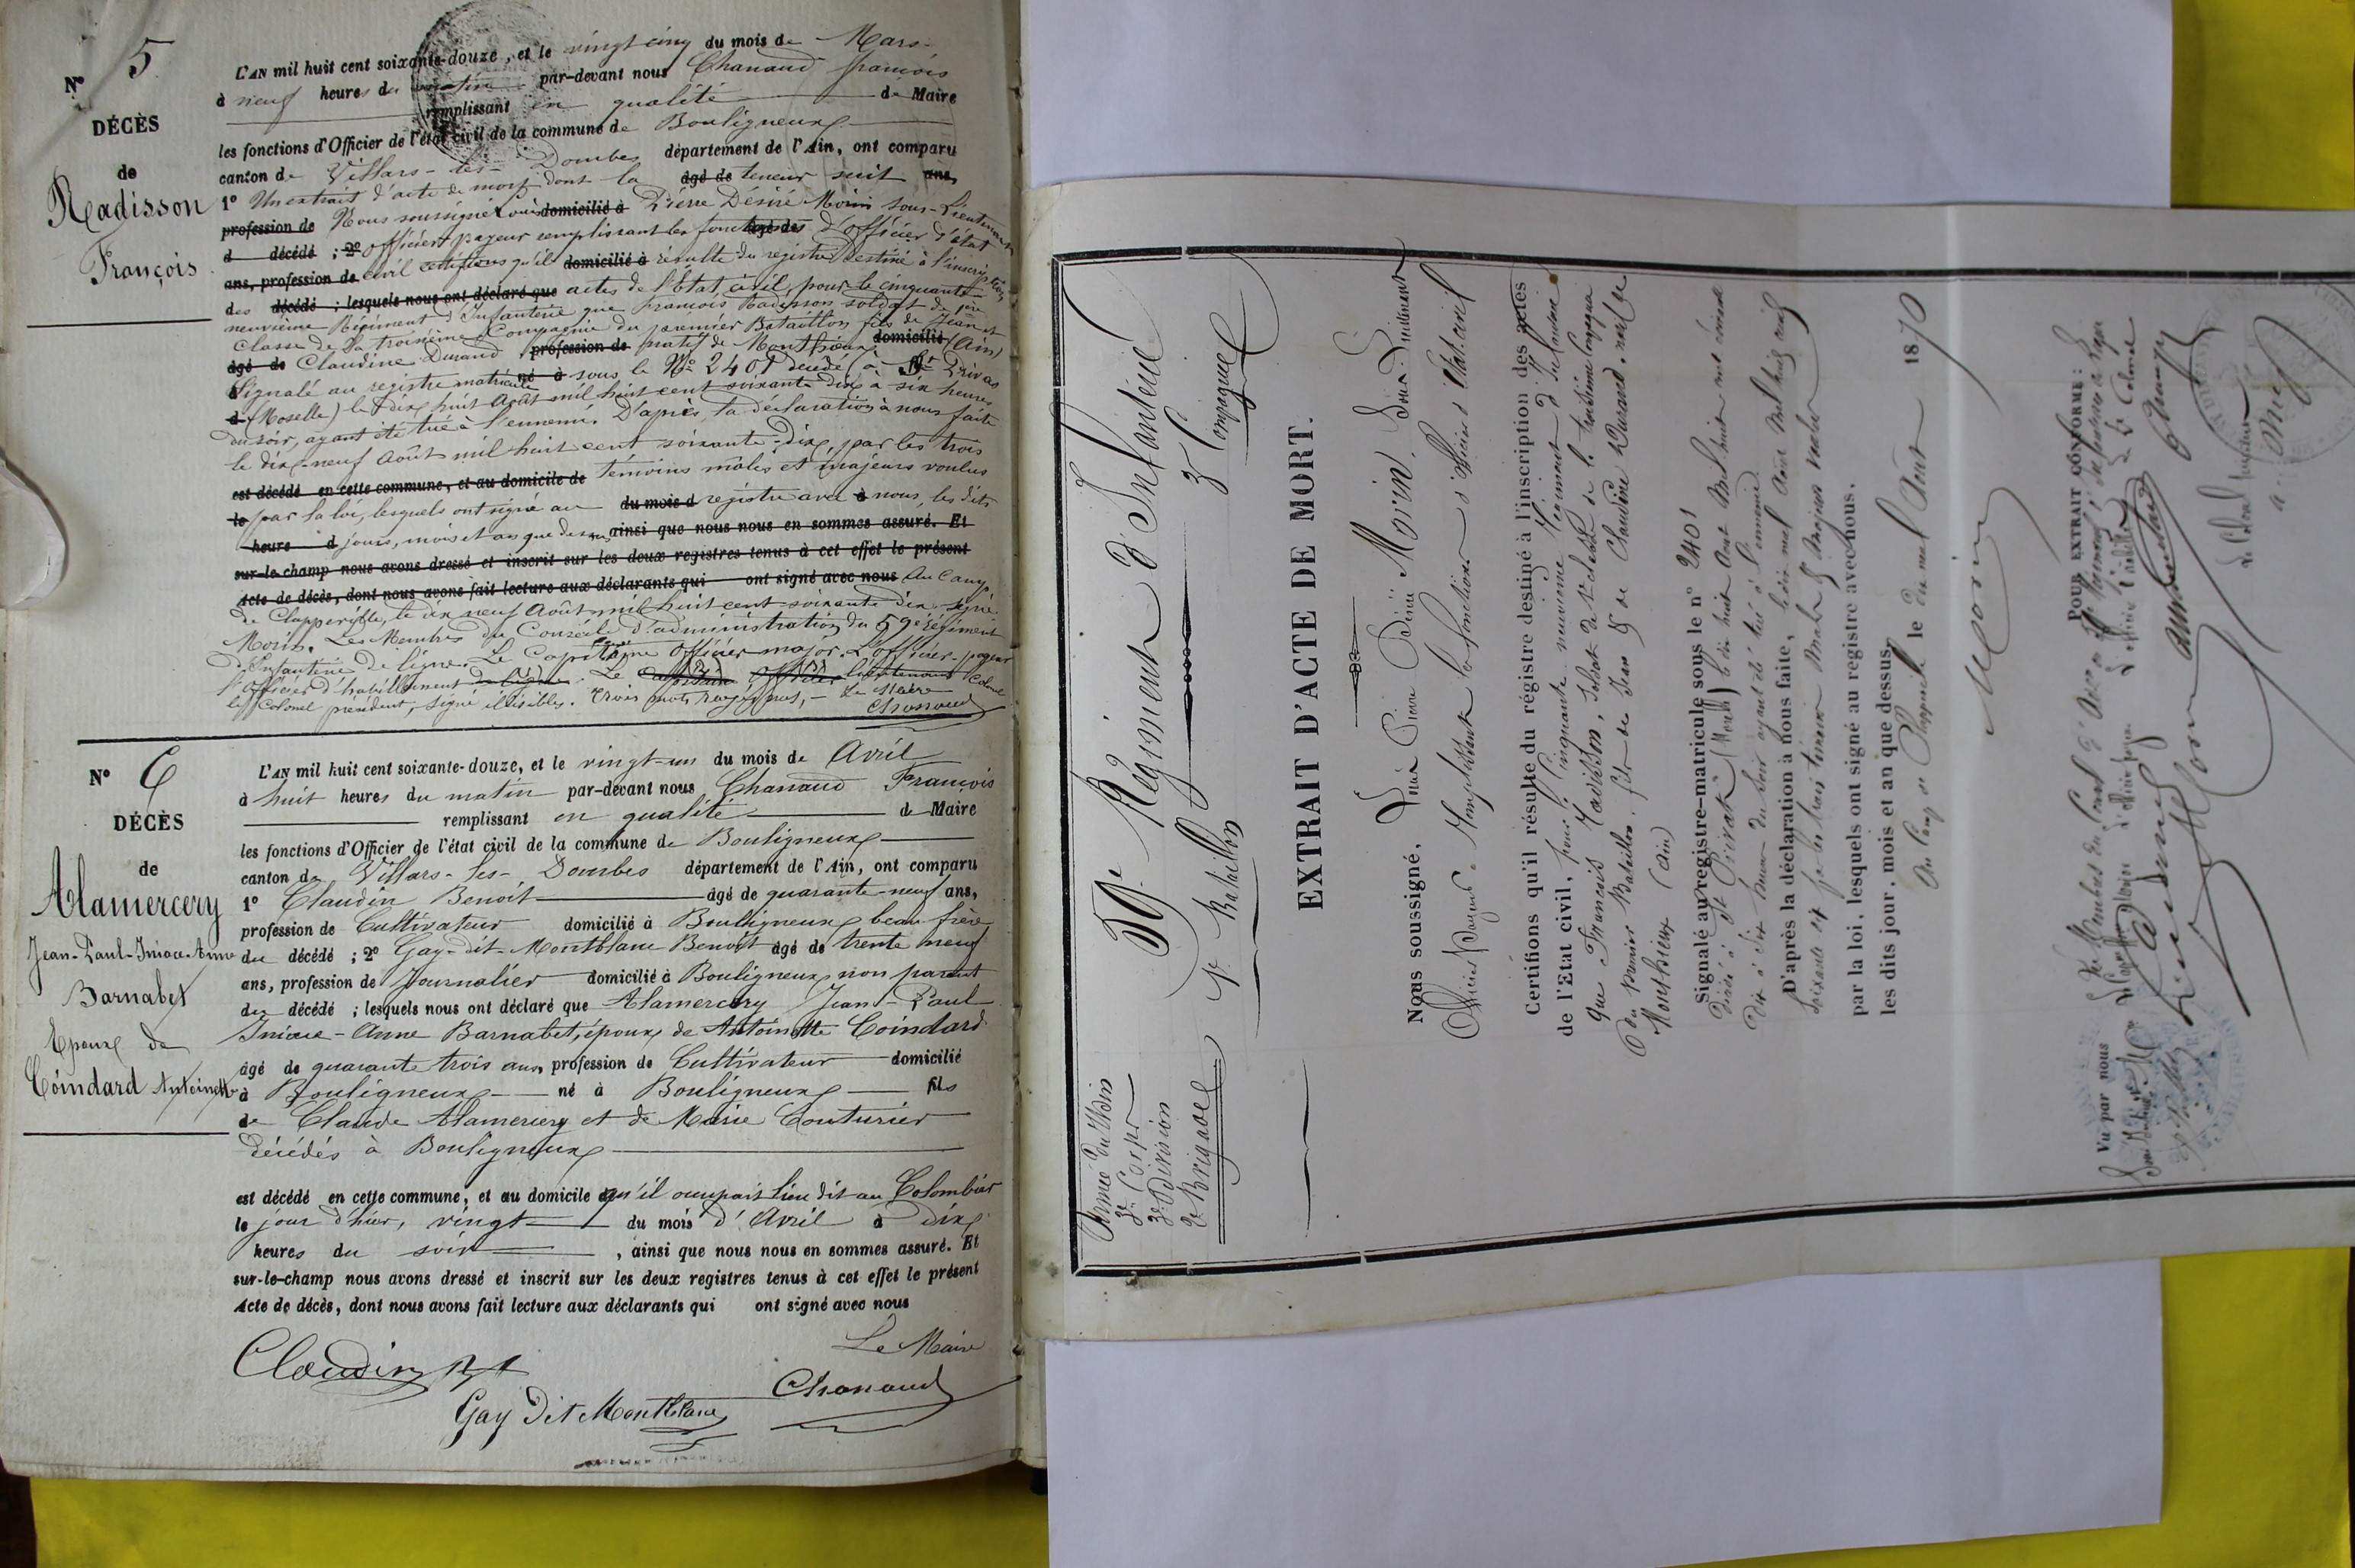 N° 5
DÉCÈS
de
Radisson
François
L'AN mil huit cent soixante-douze, et le vingt cinq du mois de Mars
à neuf heures du matin par-devant nous Chanaud françois
remplissant en qualité de Maire
les fonctions d'Officier de l'état civil de la commune de Bouligneux
canton de Villars-les-Dombes département de l'Ain, ont comparu
1° Un extrait d'acte de mort dont la âgé de teneur suit ans,
profession de Nous soussigné Louis domicilié à Pierre Désiré Morin sous-Lieutenant
d décédé ; 2° officier payeur remplissant les fonctions âgé de d'officier d'état
ans, profession de civil certifions qu'il domicilié à résulte du registre destiné à l'inscription
des décédé ; lesquels nous ont déclaré que actes de l'État civil, pour le cinquante-
neuvième Régiment d'Infanterie que François Radisson soldat de 1ère
classe de la troisième Compagnie du premier Bataillon fils de Jean et
âgé de Claudine Durand profession de natif de Monthieux domicilié (Ain)
Signalé au registre matricule né à sous le N° 2401 décédé à St Privas
d (Moselle) le dix huit Août mil huit cent soixante dix à six heures
du soir, ayant été tué à l'ennemi. D'après la déclaration à nous faite
le dix-neuf Août mil huit cent soixante-dix, par les trois
est décédé en cette commune, et au domicile de témoins mâles et majeurs voulus
le par la loi, lesquels ont signé au du mois d registre avec à nous, les dits
heure d jours, mois et an que dessus, ainsi que nous nous en sommes assuré. Et
sur-le-champ nous avons dressé et inscrit sur les deux registres tenus à cet effet le présent
Acte de décès, dont nous avons fait lecture aux déclarants qui ont signé avec nous Au Camp
de Clapperille, le dix neuf Août mil huit cent soixante dix signé
Morin. Les Membres du Conseil d'administration du 59e régiment
d'Infanterie de ligne. Le Capitaine officier major. L'officier-payeur
l'officier d'habillement Le lieutenant Colonel
le Colonel président, signé illisibles. trois mots rayés nuls, - Le Maire
Chanaud
N° 6
DÉCÈS
de
Alamercery
Jean-Paul-Iniace-Anne
Barnabet
Epoux de
Coindard Antoinette
L'AN mil huit cent soixante-douze, et le vingt-un du mois de Avril
à huit heures du matin par-devant nous Chanaud François
remplissant en qualité de Maire
les fonctions d'Officier de l'état civil de la commune de Bouligneux
canton de Villars-les-Dombes département de l'Ain, ont comparu
1° Claudin Benoit âgé de quarante-neuf ans,
profession de Cultivateur domicilié à Bouligneux beau frère
du décédé ; 2° Gay-dit-Montblanc Benoît âgé de trente neuf
ans, profession de Journalier domicilié à Bouligneux non parent
du décédé ; lesquels nous ont déclaré que Alamercery Jean-Paul
Iniace-Anne Barnabet, époux de Antoinette Coindard
âgé de quarante trois ans, profession de Cultivateur domicilié
à Bouligneux né à Bouligneux fils
de Claude Alamercery et de Marie Couturier
décédés à Bouligneux
est décédé en cette commune, et au domicile qu'il occupait lieu dit au Colombier
le jour d'hier, vingt du mois d'Avril à dix
heures du soir , ainsi que nous nous en sommes assuré. Et
sur-le-champ nous avons dressé et inscrit sur les deux registres tenus à cet effet le présent
Acte de décès, dont nous avons fait lecture aux déclarants qui ont signé avec nous
Le Maire
Claudin
Chanaud
Gay Dit Montblanc
Armée du Rhin
3e Corps
3e Division
2e Brigade
59e Régiment d'Infanterie
1er Bataillon
3e Compagnie
EXTRAIT D'ACTE DE MORT.
Nous soussigné, Louis Pierre Désiré Morin, Sous-Lieutenant
Officier Payeur, remplissant les fonctions d'officier d'Etat-civil
Certifions qu'il résulte du régistre destiné à l'inscription des actes
de l'Etat civil, pour le Cinquante neuvième Régiment d'Infanterie
que François Radisson, Soldat de 1re classe de la troisième Compagnie
du premier Bataillon, fils de Jean & de Claudine Durand, natif de
Monthieux (Ain)
Signalé au registre-matricule sous le n° 2401
décédé à St Privat (Moselle) le dix huit Aout Mil huit cent soixante
dix à six heures du soir ayant été tué à l'ennemi
D'après la déclaration à nous faite, le dix neuf Aout Mil huit cent
soixante dix par les trois témoins Mâles & Majeurs voulus
par la loi, lesquels ont signé au registre avec nous,
les dits jour, mois et an que dessus.
Au Camp de Clapperille le dix neuf Aout 1870
Morin
POUR EXTRAIT CONFORME :
Vu par nous
Les Membres du Conseil d'
Le Colonel